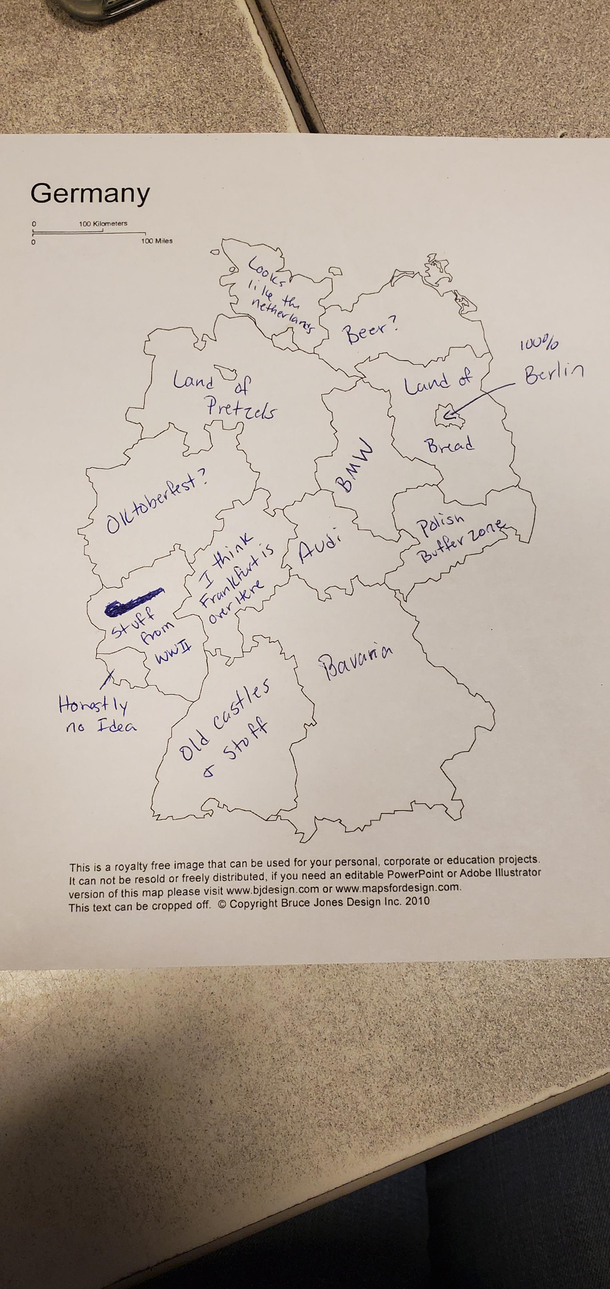 Germany
0 100 Kilometers
0 100 Miles
Looks
like the
netherlands
Beer?
100%
Berlin
Land of
Pretzels
Land of
Bread
BMW
Oktoberfest?
I think
Frankfurt is
over Here
Audi
Polish
Buffer zone
Stuff
from
WWII
Honestly
no Idea
Bavaria
Old castles
& stuff
This is a royalty free image that can be used for your personal, corporate or education projects.
It can not be resold or freely distributed, if you need an editable PowerPoint or Adobe Illustrator
version of this map please visit www.bjdesign.com or www.mapsfordesign.com.
This text can be cropped off. © Copyright Bruce Jones Design Inc. 2010